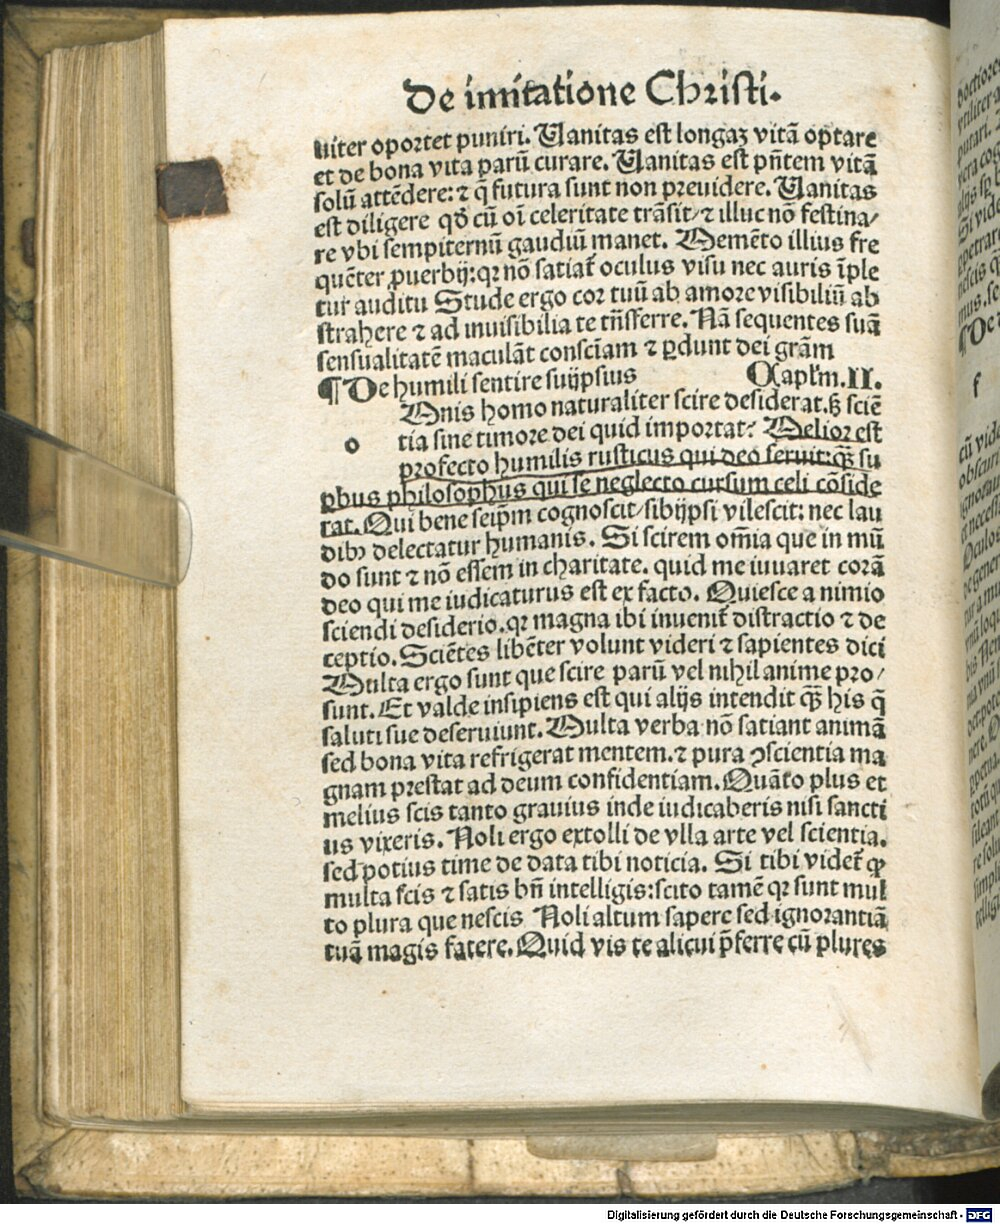 De imitatione Christi.
uiter oportet puniri. Uanitas est longaꝫ vitā optare
et de bona vita parū curare. Uanitas est pn̄tem vitā
solū attēdere: ⁊ q̄ futura sunt non preuidere. Uanitas
est diligere qd̄ cū oī celeritate trāsit/ ⁊ illuc nō festina/
re vbi sempiternū gaudiū manet. Memēto illius fre
quēter ꝓuerbij: qꝛ nō satiat̄ oculus visu nec auris īple
tur auditu Stude ergo cor tuū ab amore visibiliū ab
strahere ⁊ ad inuisibilia te trāsferre. Nā sequentes suā
sensualitatē maculāt consciam ⁊ ꝑdunt dei grām
¶ De humili sentire suijpsius Capl̄m. II.
o
Omnis homo naturaliter scire desiderat. sꝫ sciē
tia sine timore dei quid importat? Melior est
profecto humilis rusticus qui deo seruit: qꝫ̄ su
ꝑbus philosophus qui se neglecto cursum celi cōside
rat. Qui bene seip̄m cognoscit/ sibijpsi vilescit: nec lau
dibꝰ delectatur humanis. Si scirem om̄ia que in mū
do sunt ⁊ nō essem in charitate. quid me iuuaret corā
deo qui me iudicaturus est ex facto. Quiesce a nimio
sciendi desiderio. qꝛ magna ibi inuenit̄ distractio ⁊ de
ceptio. Sciētes libēter volunt videri ⁊ sapientes dici
Multa ergo sunt que scire parū vel nihil anime pro/
sunt. Et valde insipiens est qui alijs intendit qꝫ̄ his q̄
saluti sue deseruiunt. Multa verba nō satiant animā
sed bona vita refrigerat mentem. ⁊ pura ꝯscientia ma
gnam prestat ad deum confidentiam. Quāto plus et
melius scis tanto grauius inde iudicaberis nisi sancti
us vixeris. Noli ergo extolli de vlla arte vel scientia.
sed potius time de data tibi noticia. Si tibi videt̄ ꝙ
multa scis ⁊ satis bn̄ intelligis: scito tamē qꝛ sunt mul
to plura que nescis Noli altum sapere sed ignorantiā
tuā magis fatere. Quid vis te alicui p̄ferre cū plures
Digitalisierung gefördert durch die Deutsche Forschungsgemeinschaft - DFG